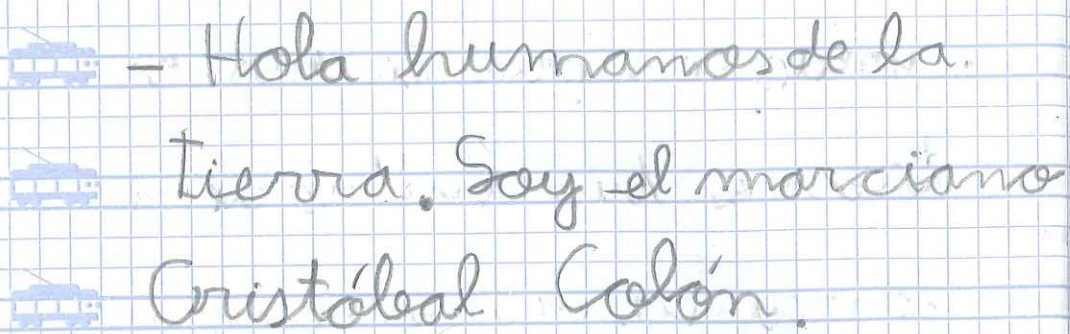 - Hola humanos de la
tierra. Soy el marciano
Cristóbal Colón.